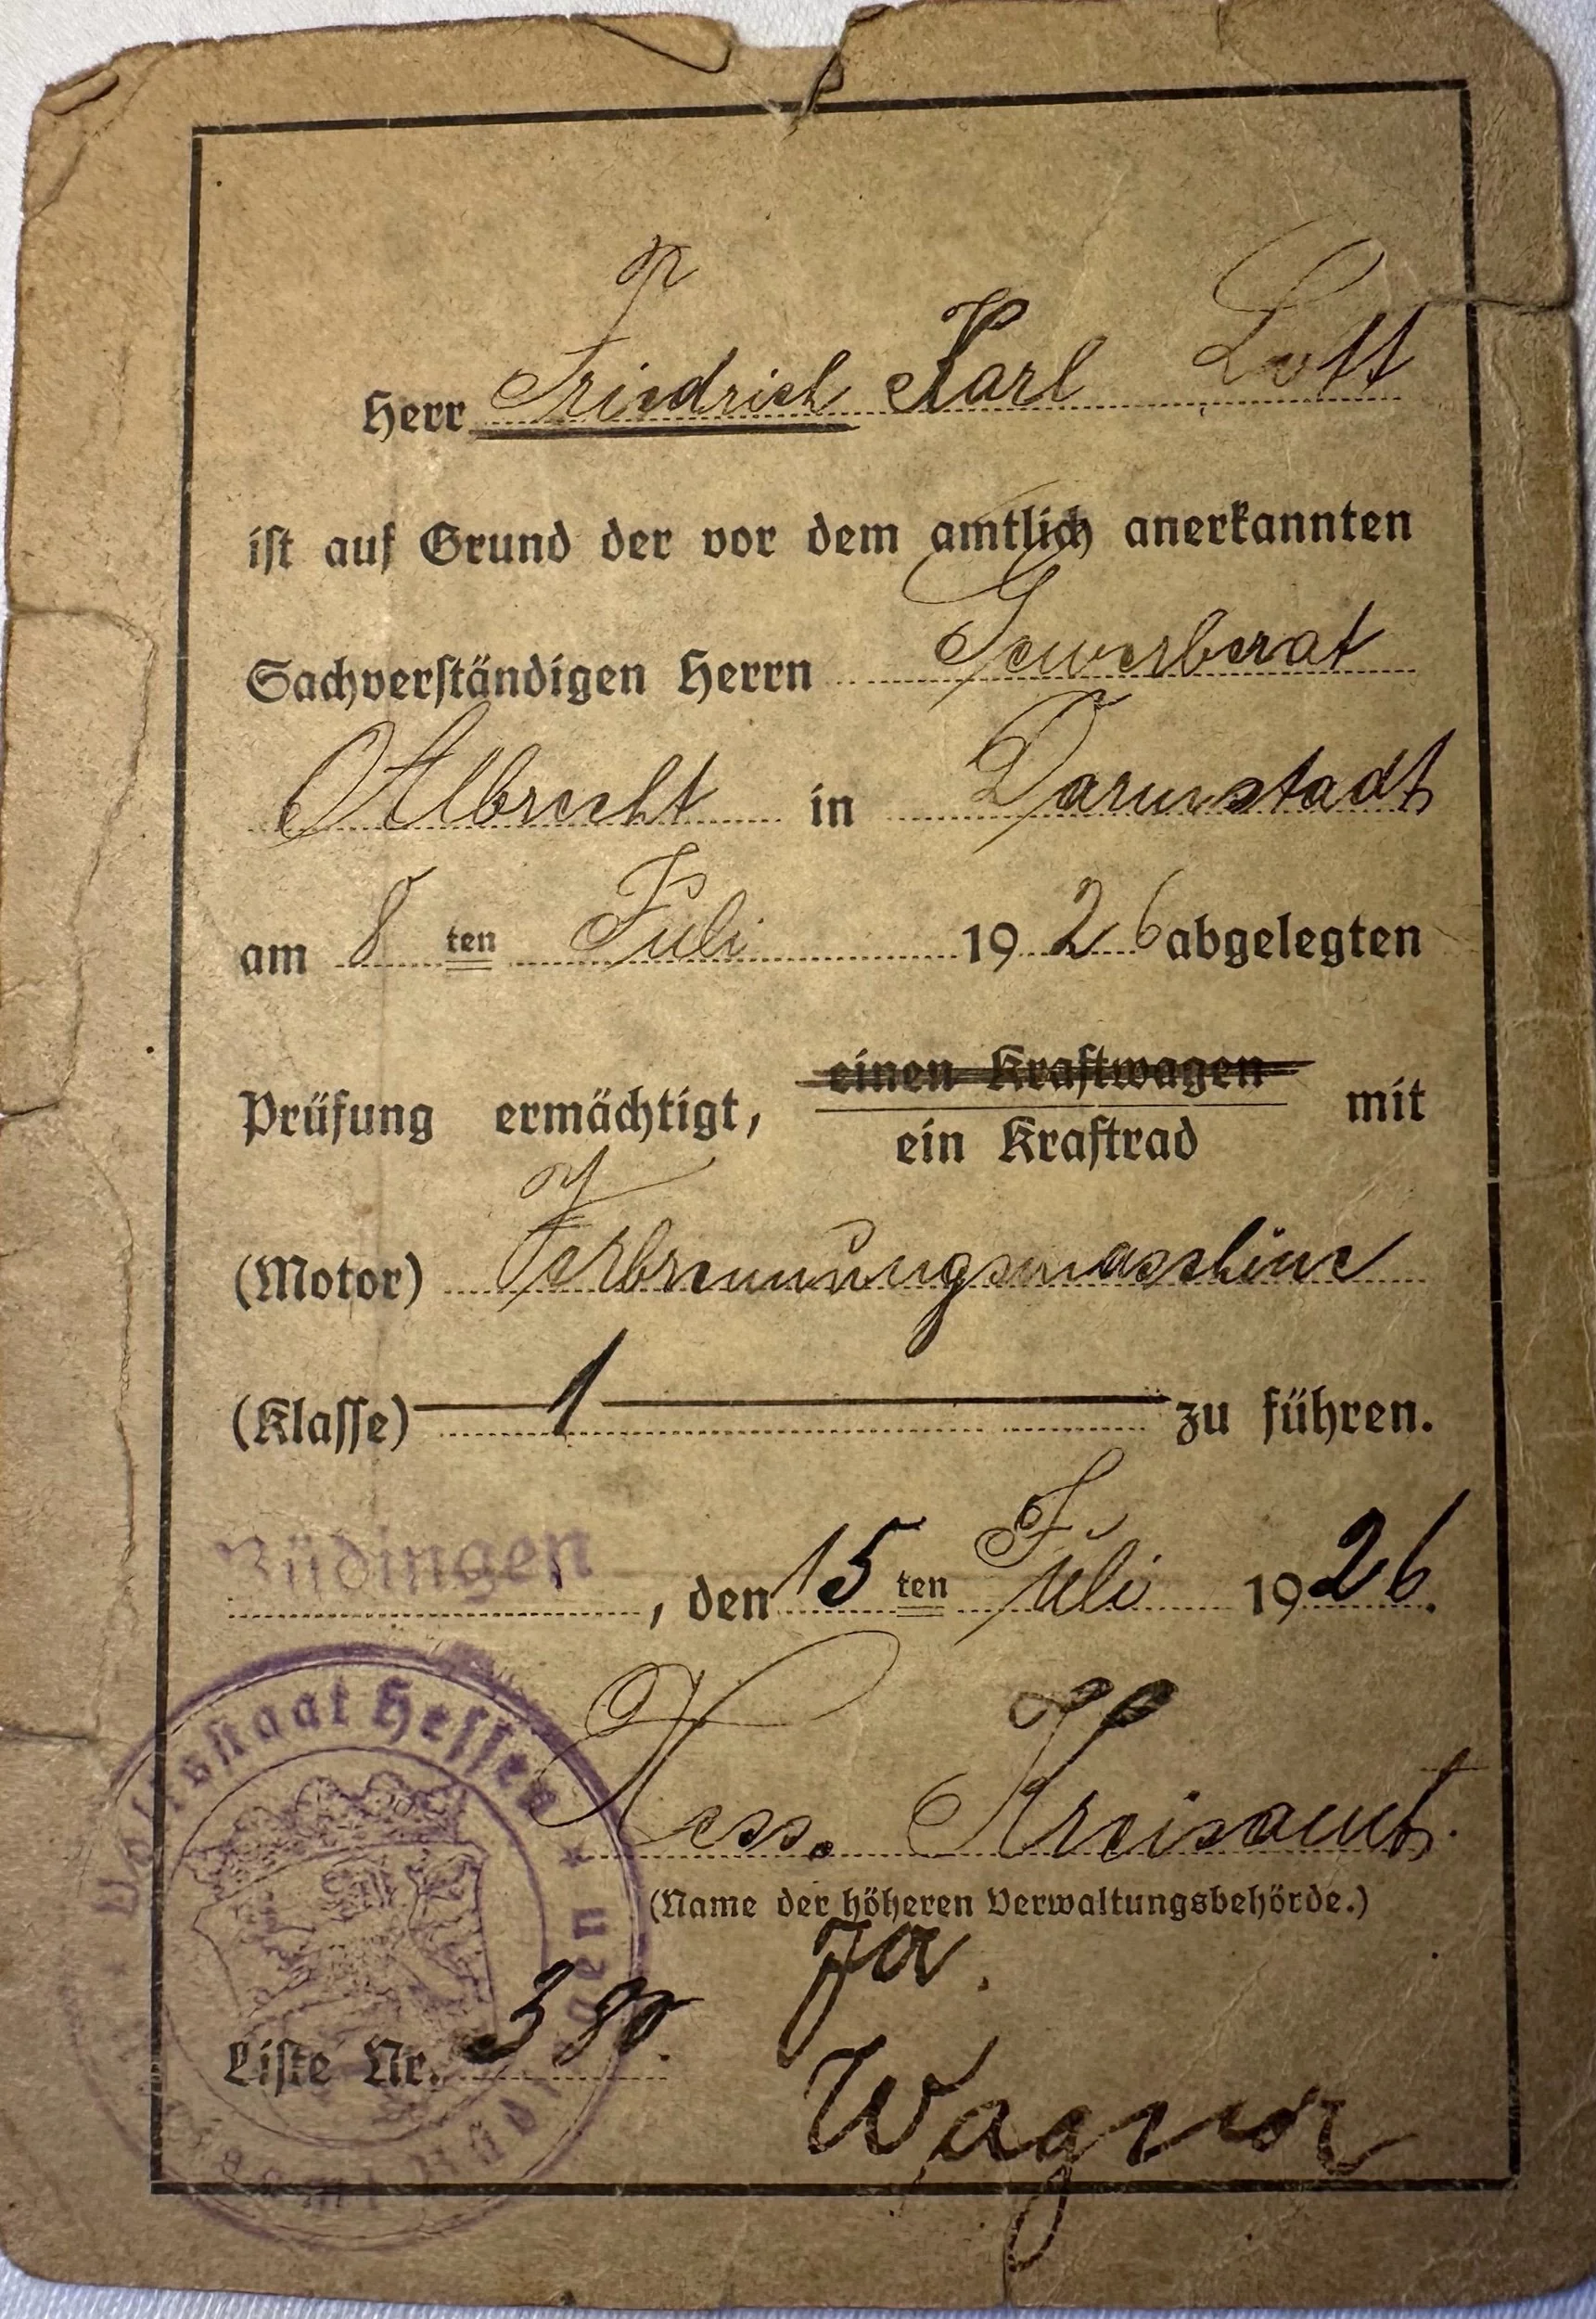 Herr Friedrich Karl Lott
ist auf Grund der vor dem amtlich anerkannten
Sachverständigen Herrn Gewerberat
Albrecht in Darmstadt
am 8 ten Juli 1926 abgelegten
Prüfung ermächtigt, einen Kraftwagen mit
ein Kraftrad
(Motor) Verbrennungsmaschine
(Klasse) 1 zu führen.
Büdingen, den 15 ten Juli 1926.
Volksstaat Hessen
Hess. Kreisamt.
(Name der höheren Verwaltungsbehörde.)
Liste Nr. 380.
Wagner